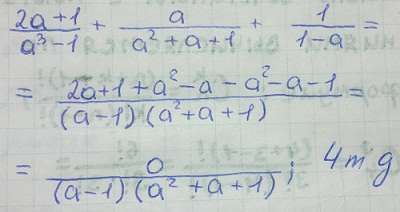 (2a+1)/(a³-1) + a/(a²+a+1) + 1/(1-a) =
= (2a+1+a²-a-a²-a-1)/((a-1)(a²+a+1)) =
= 0/((a-1)(a²+a+1)); чтд